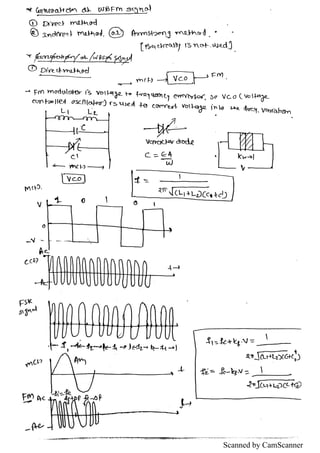 * Generation of WBFM signal
① Direct method
② Indirect method. (or) Armstrong method.
[Practically is not used]
* Generation of WBFM signal
① Direct method
m(t) → VCO → FM.
→ FM modulator is voltage to frequency convertor, so VCO (voltage
controlled oscillator) is used to convert voltage into the freq. variation.
L1 L2
C
C1
m(t)
VCO
Varactor diode
C = εA / W
W
V
f = 1 / 2π √(L1+L2)(C+C1)
m(t).
V 1 0 1 0 1
0
-V
Ac
c(t) t→
FSK
signal
m(t) Am
t
fi=fc
FM Ac
-Ac
f1 = fc+kf.V = 1 / 2π √(L1+L2)(C+C1)
f2 = fc-kf.V = 1 / 2π √(L1+L2)(C+C1)
Scanned by CamScanner